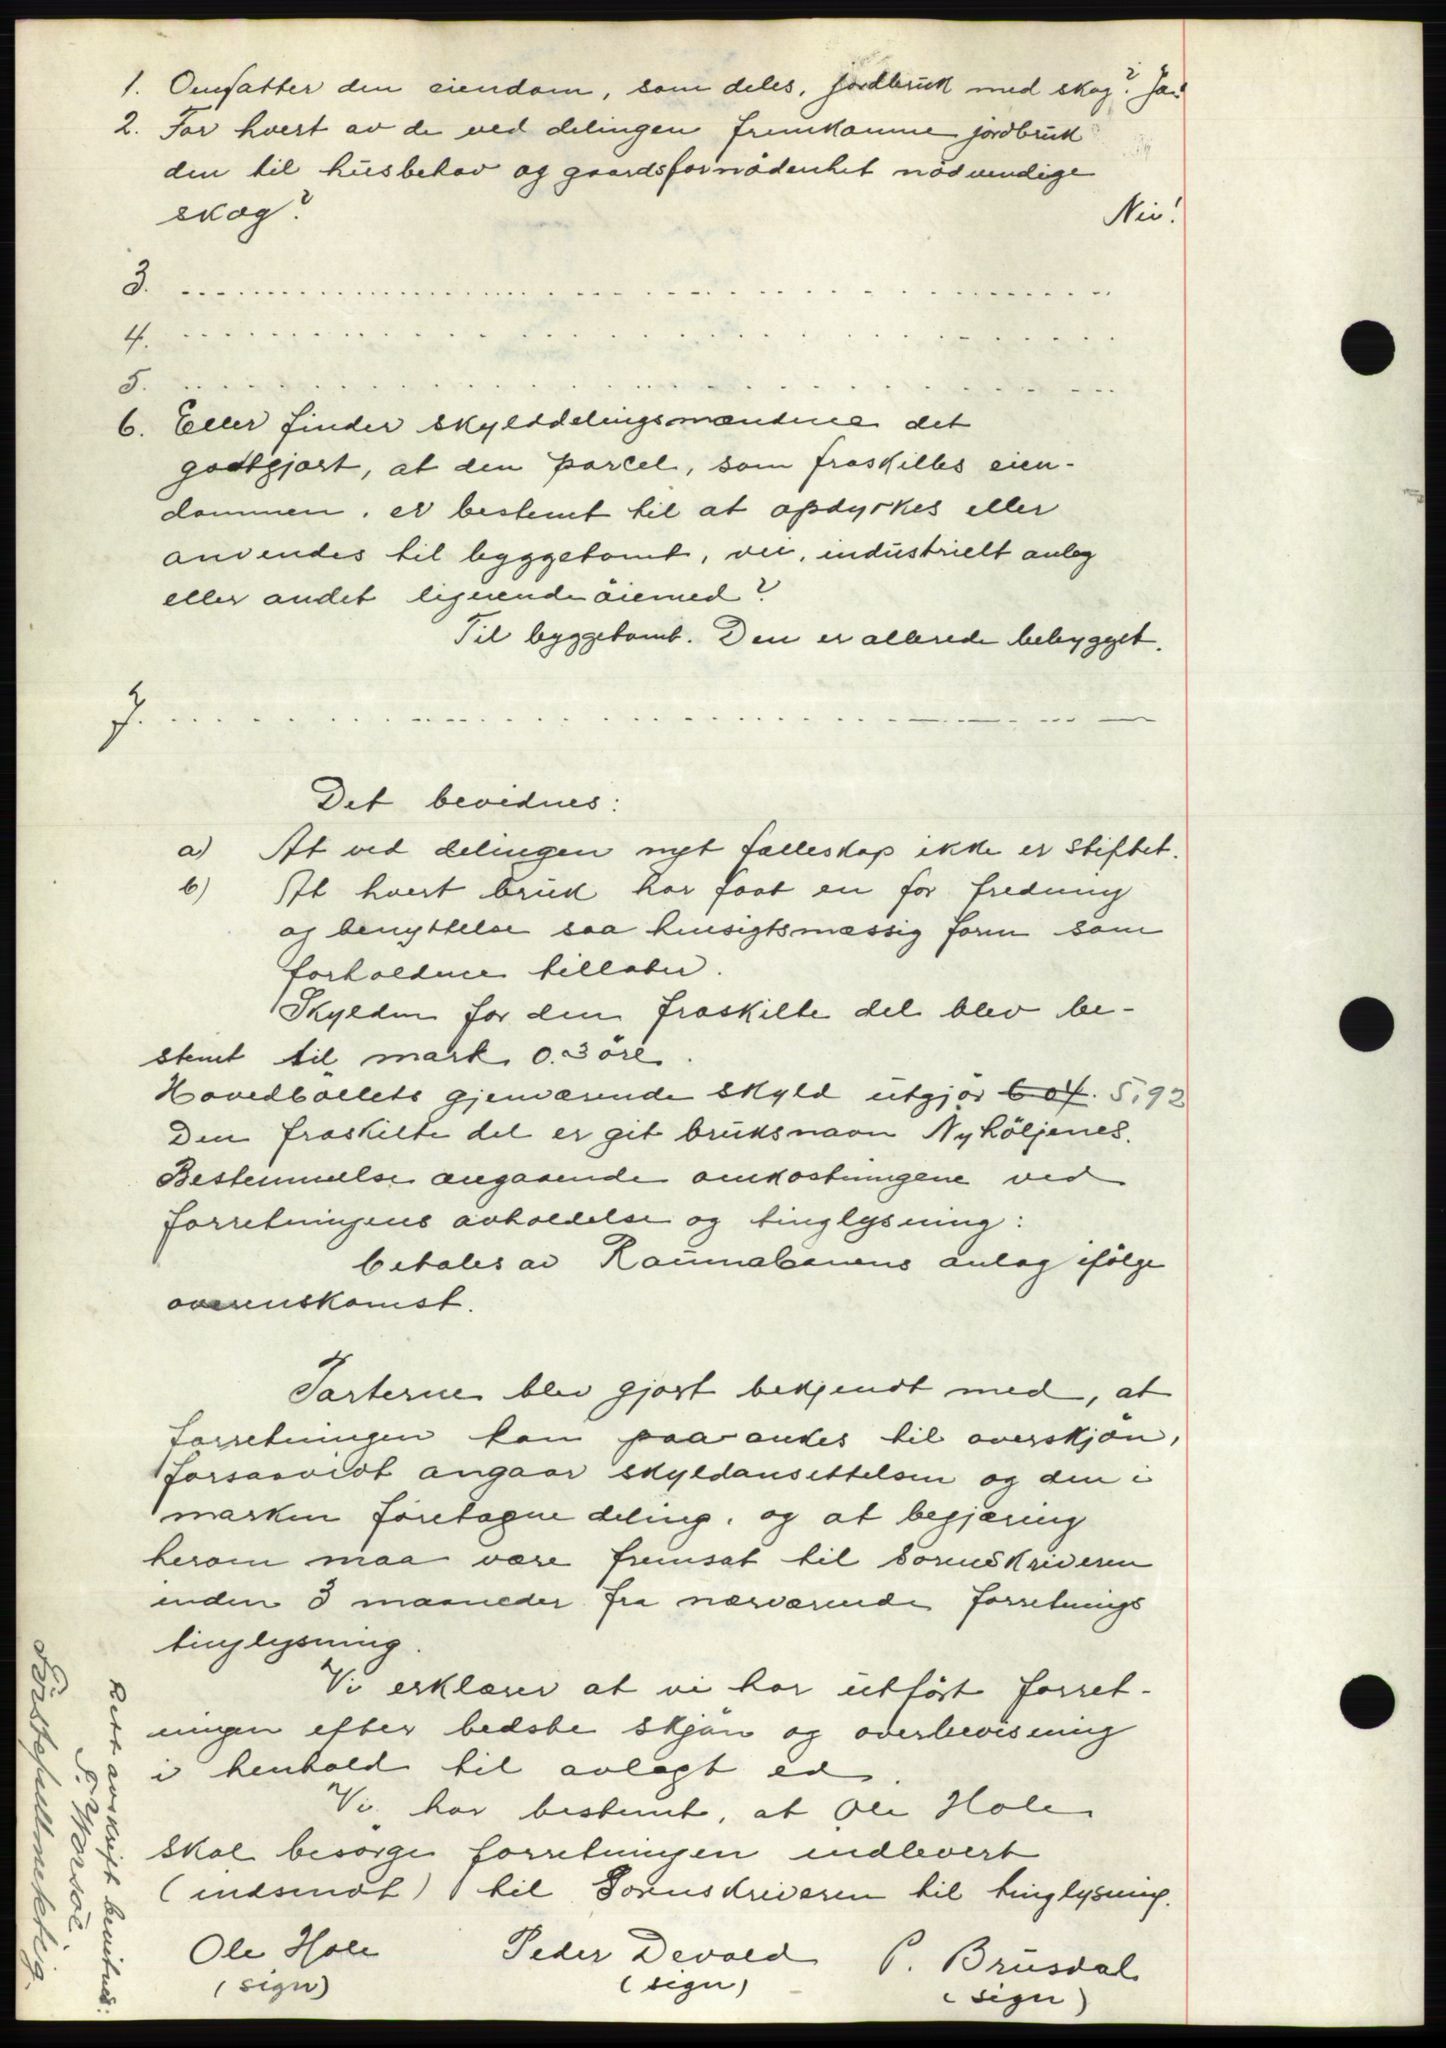 1. Omfatter den eiendom, som deles, jordbruk med skog? Ja!
2. For hvert av de ved delingen fremkomne jordbruk
den til husbehov og gaardsfornødenhet nødvendige
skog? Nei!
3. ........................
4. ........................
5. ........................
6. Eller finder skylddelingsmændene det
godtgjort, at den parcel, som fraskilles eien-
dommen, er bestemt til at opdyrkes eller
anvendes til byggetomt, vei, industrielt anlæg
eller andet lignende öiemed?
Til byggetomt. Den er allerede bebygget.
7. ........................
Det bevidnes:
a) At ved delingen nyt fælleskap ikke er stiftet.
b) At hvert bruk har faat en for fredning
og benyttelse saa hensigtsmæssig form som
forholdene tillater.
Skylden for den fraskilte del blev be-
stemt til mark 0.3 öre.
Hovedbölets gjenværende skyld utgjör 6 04. 5,92
Den fraskilte del er git bruksnavn Nyhöljenes.
Bestemmelse angaaende omkostningene ved
forretningens avholdelse og tinglysning:
betales av Raumabanens anlæg ifölge
overenskomst.
Parterne blev gjort bekjendt med, at
forretningen kan paa-ankes til overskjön,
forsaavidt angaar skyldansettelsen og den i
marken foretagne deling, og at begjæring
herom maa være fremsat til Sorenskriveren
inden 3 maaneder fra nærværende forretnings
tinglysning.
Vi erklærer at vi har utfört forret-
ningen efter bedste skjön og overbevisning
i henhold til avlagt ed.
Vi har bestemt, at Ole Hole
skal besörge forretningen indlevert
(indsendt) til Sorenskriveren til tinglysning.
Ole Hole Peder Devold P. Brusdal
(sign) (sign) (sign)
Rett avskrift bevitnes:
Förstefullmektig.